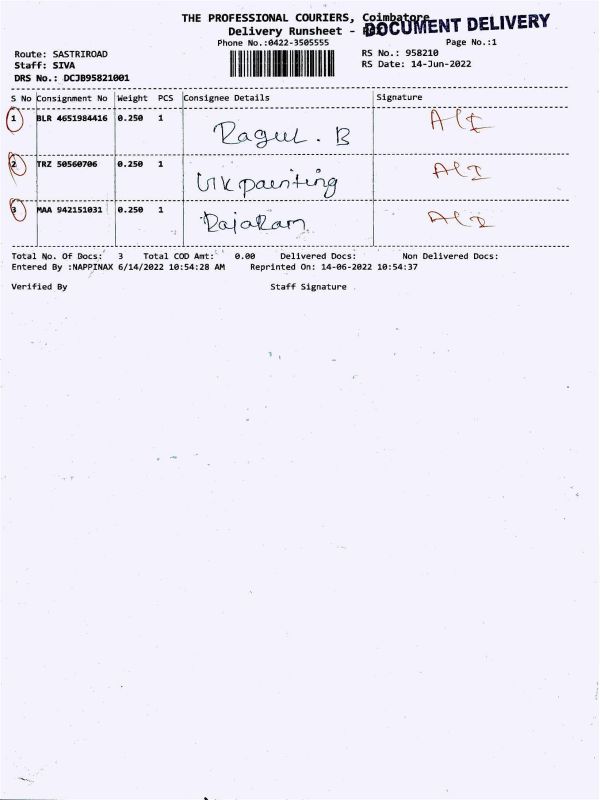 THE PROFESSIONAL COURIERS, Coimbatore
DOCUMENT DELIVERY
Delivery Runsheet -
Phone No.:0422-3505555 Page No.:1
Route: SASTRIROAD RS No.: 958210
Staff: SIVA RS Date: 14-Jun-2022
DRS No.: DCJB95821001
S No Consignment No Weight PCS Consignee Details Signature
1 BLR 4651984416 0.250 1 Ragul. B ALI
2 TRZ 50560706 0.250 1 painting ALI
3 MAA 942151031 0.250 1 RajaRam ALI
Total No. Of Docs: 3 Total COD Amt: 0.00 Delivered Docs: Non Delivered Docs:
Entered By :NAPPINAX 6/14/2022 10:54:28 AM Reprinted On: 14-06-2022 10:54:37
Verified By Staff Signature